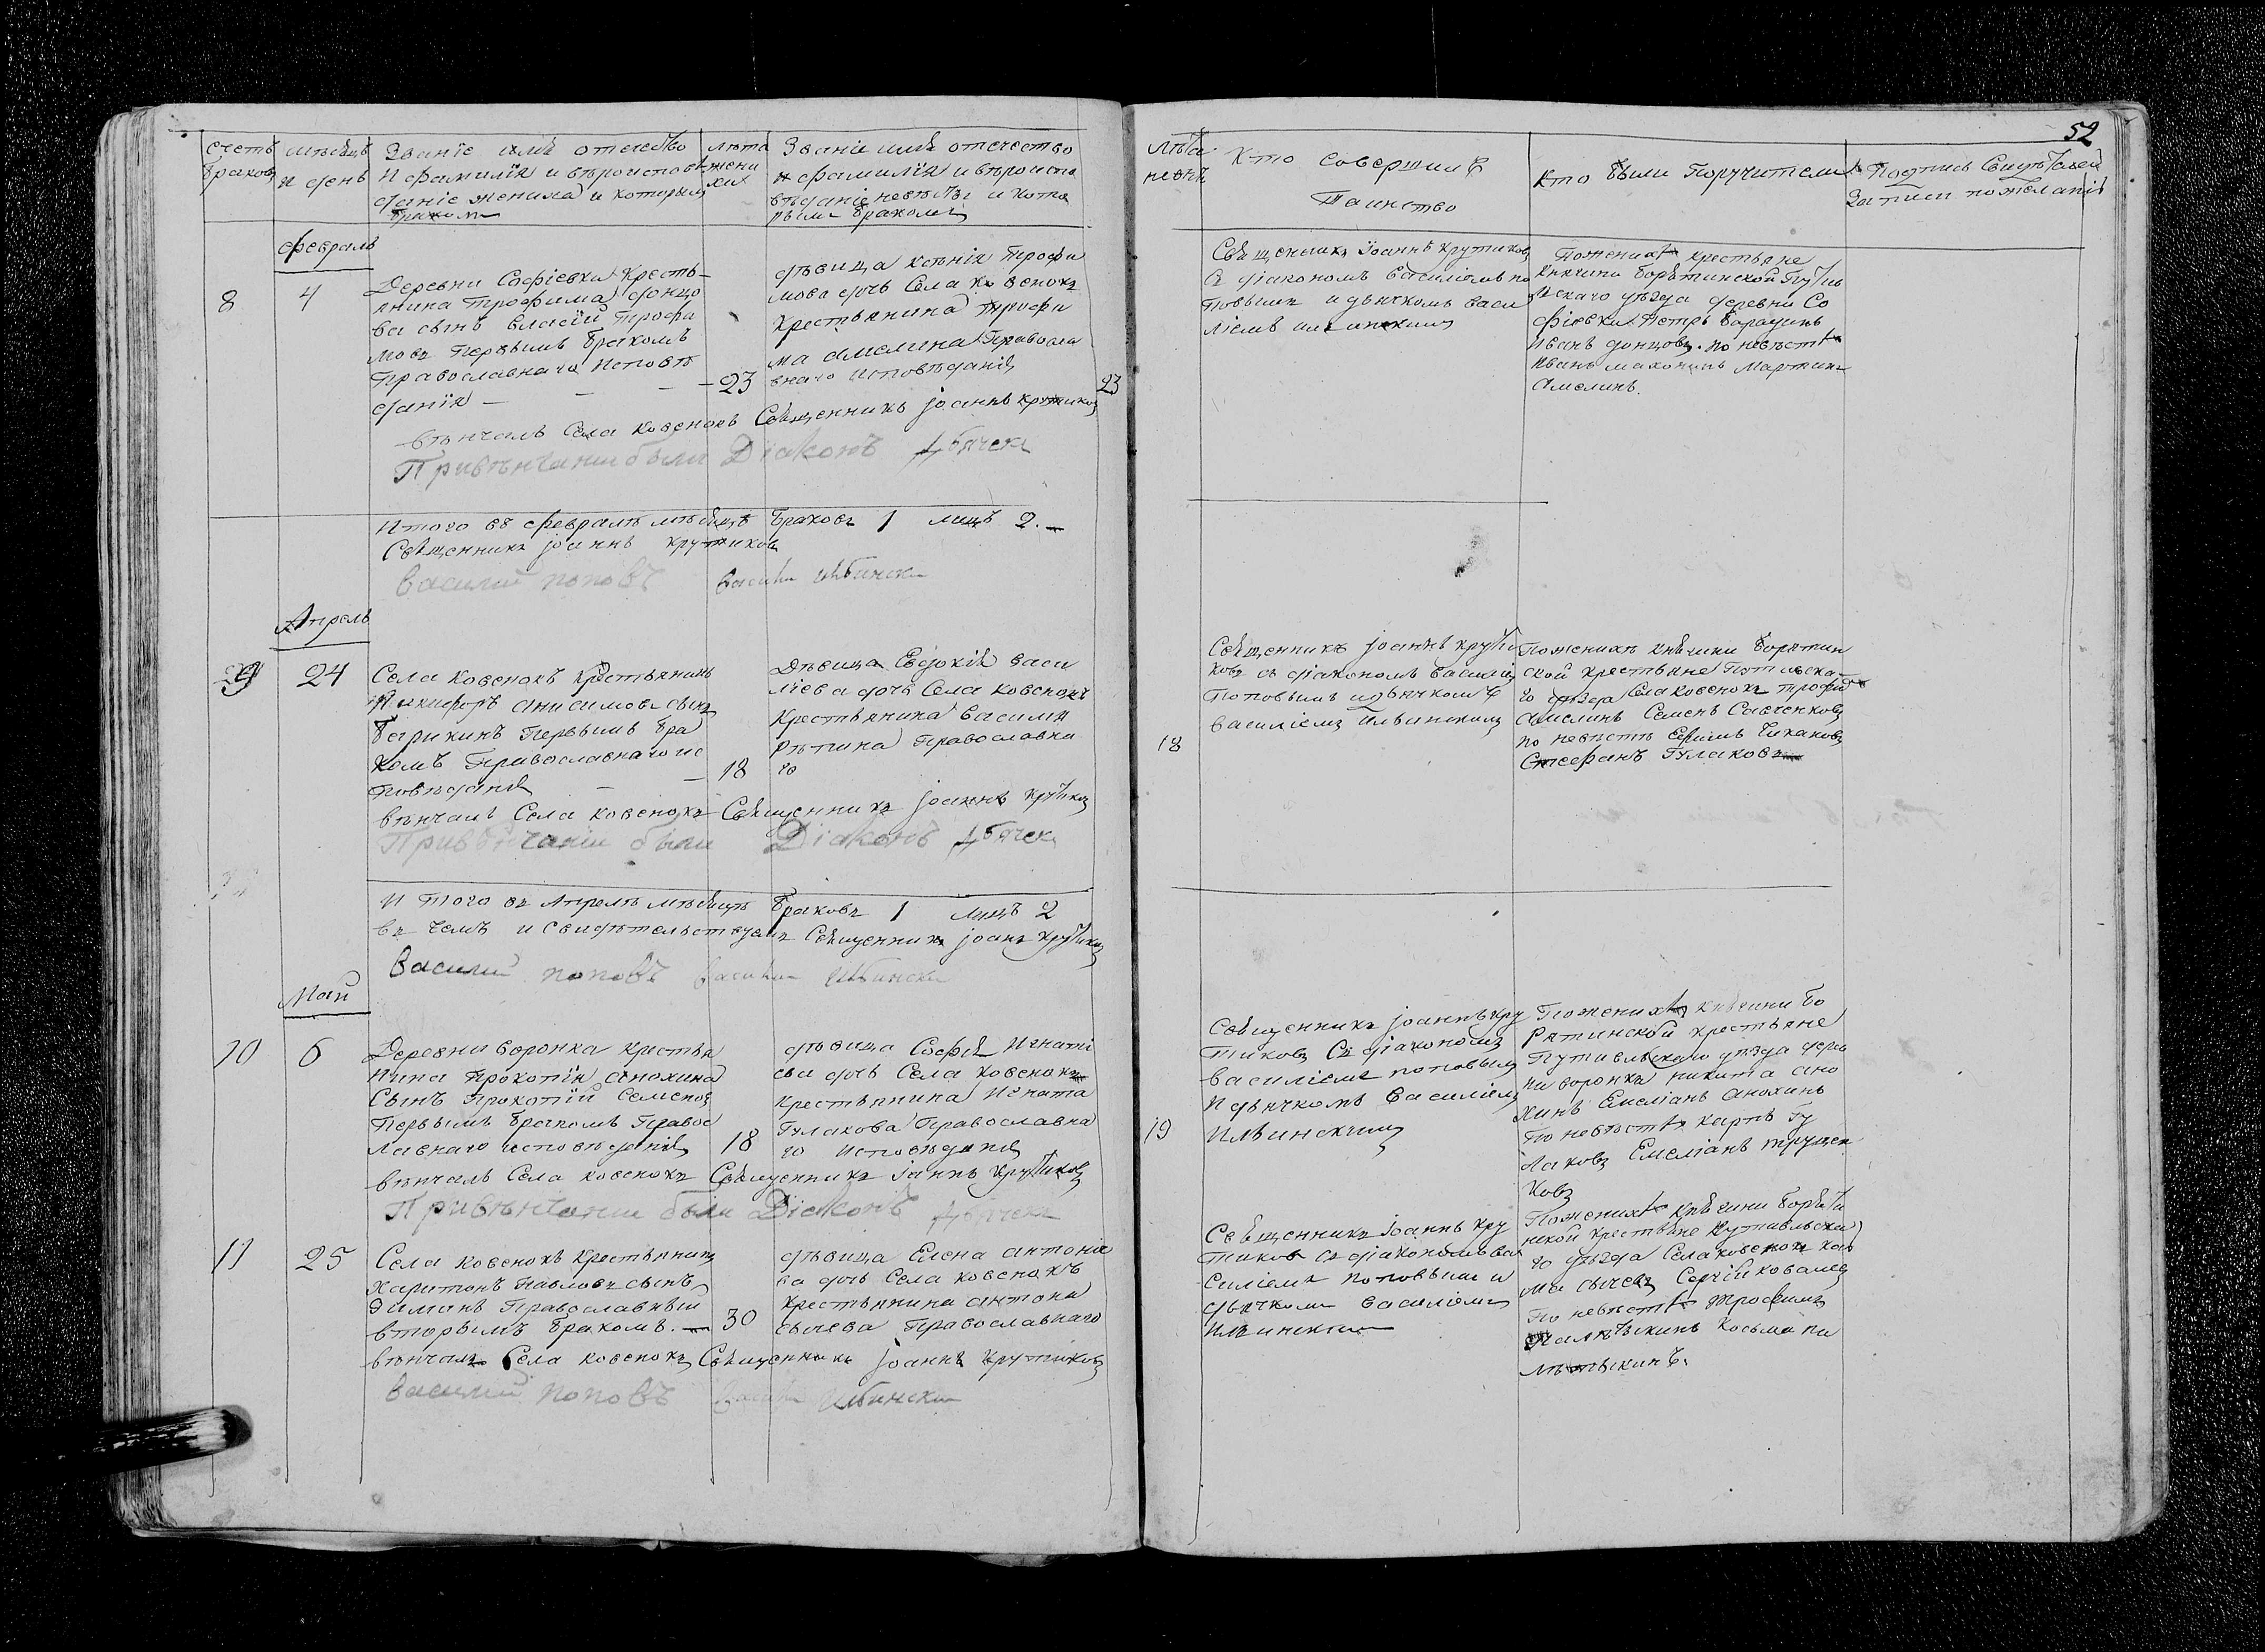 52
счетъ браковъ
мѣсяцъ и день
Званіе имя отечество
и фамилія и вѣроисповѣ
даніе жениха и которымъ
бракомъ
лѣта жени хи
Званіе имя отечество
и фамилія и вѣроиспо
вѣданіе невѣсты и кото
рымъ бракомъ
лѣта невѣ
Кто совершилъ
Таинство
Кто были Поручители
Подпись Свидѣтелей
Записи пожеланію
февраль
8
4
Деревни Софіевки кресть-
янина Трофима донцо
ва сынъ власій Трофи
мовъ Первымъ бракомъ
Православнаго Исповѣ
данія
23
дѣвица ксѣнія Трофи
мова дочь Села ковенокъ
крестьянина Трофи
ма амелина Правосла
внаго исповѣданія
23
Священникъ Іоаннъ крутиковъ
съ діакономъ василіемъ по
повымъ и дьячкомъ васи
ліемъ ильинскимъ
Пожениху крестьяне
княжини борятинской Пути
скаго уѣзда деревни Со
фіевки Петръ
Иванъ донцовъ. по невѣстѣ
Иванъ Мартинъ
Амелинъ.
вѣнчалъ Села ковенокъ Священникъ іоаннъ крутиковъ
Привѣнчаніи были Діаконъ дьячекъ
Итого въ февралѣ мѣсяцѣ браковъ 1 лицъ 2.
Священникъ іоаннъ крутиковъ
василий поповъ василий ильинский
Апрель
9
24
Села ковенокъ крестьянинъ
Никифоръ анисимовъ сынъ
барикинъ Первымъ бра
комъ Православнаго ис
повѣданія
18
Дѣвица Евдокія васи
ліева дочь Села ковенокъ
крестьянина василія
рѣпина Православна
го
18
Священникъ іоаннъ крути
ковъ съ діакономъ василіемъ
Поповымъ и дьячкомъ
василіемъ ильинскимъ
Пожениху княжини борятин
ской крестьяне Путивлска
го уѣзда Села ковенокъ трофимъ
Амелинъ Семенъ Савченковъ
по невѣстѣ Ефимъ Чикаковъ
Стефанъ Гулаковъ
вѣнчалъ Села ковенокъ Священникъ іоаннъ крутиковъ
Привѣнчаніи были Діаконъ дьячекъ
Итого въ Апрелѣ мѣсяцѣ браковъ 1 лицъ 2
въ чемъ и свидѣтельствуемъ Священникъ іоанъ крутиковъ
Василий поповъ василий ильинский
Май
10
6
Деревни воронка крестья
нина Прокопія анохина
Сынъ Прокопій Семеновъ
Первымъ бракомъ Правос
лавнаго исповѣданія
18
дѣвица Софія Игнатіе
ва дочь Села ковенокъ
крестьянина Игната
Гулакова Православна
го исповѣданія
19
Священникъ іоаннъ кру
тиковъ съ діакономъ
василіемъ поповымъ
и дьячкомъ василіемъ
Ильинскимъ
Пожениху княжини бо
рятинской крестьяне
Путивльскаго уѣзда дерев
ни воронка никита ано
хинъ Емеліанъ анохинъ
По невѣстѣ карпъ Гу
лаковъ Емеліанъ трущен
ковъ
вѣнчалъ Села ковенокъ Священникъ Іаннъ крутиковъ
Привѣнчаніи были Діаконъ дьячекъ
11
25
Села ковенокъ крестьянинъ
Харитонъ Павловъ сынъ
Зиманъ Православный
вторымъ бракомъ.
30
дѣвица Елена антоніе
ва дочь Села ковенокъ
крестьянина антона
сычева Православнаго
Священникъ іоаннъ кру
тиковъ съ діакономъ ва
силіемъ поповымъ и
дьячкомъ василіемъ
Ильинскимъ
Пожениху княжини боряти
нской крестьяне Путивльска
го уѣзда Села ковенокъ
сычевъ Сергій ковалевъ
По невѣстѣ Трофимъ
Палѣтыкинъ Косьма па
лѣтыкинъ.
вѣнчалъ Села ковенокъ Священникъ іоаннъ крутиковъ
василий поповъ василий ильинский